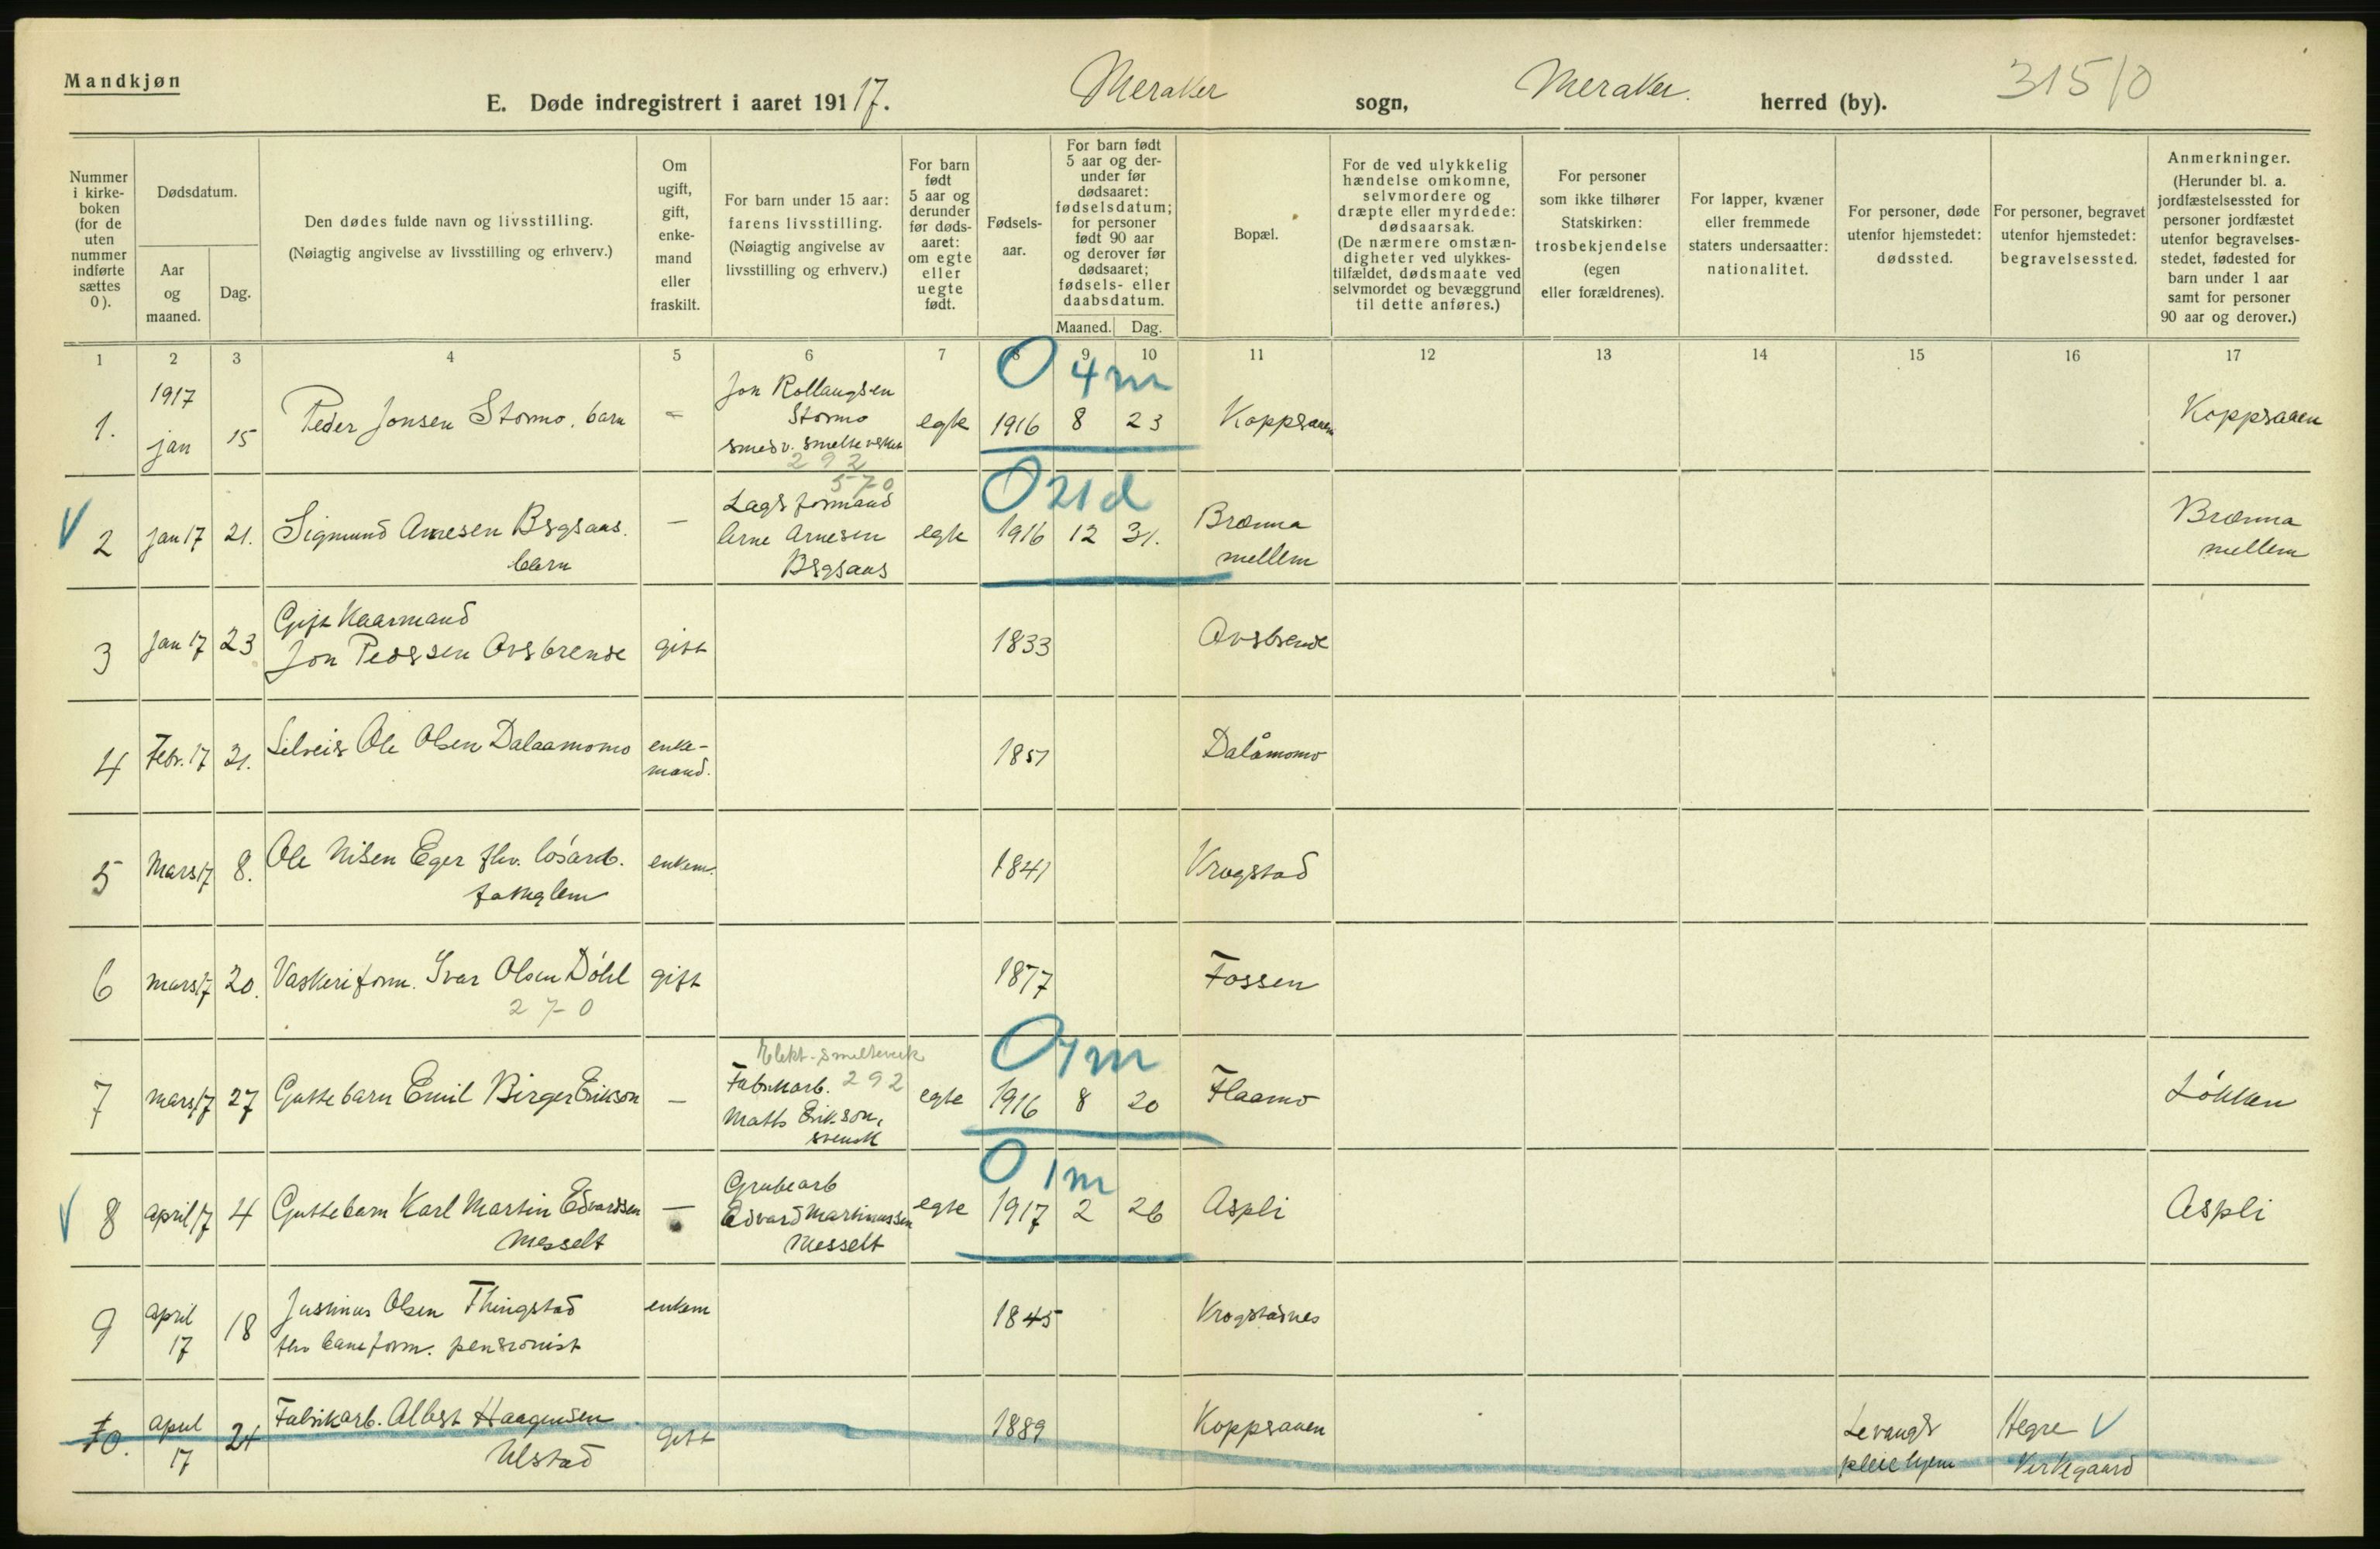 Mandkjøn
E. Døde indregistrert i aaret 1917.
Meraker sogn,
Meraker. herred (by).
315/0
Nummer i kirke-boken (for de uten nummer indførte sættes 0).
Dødsdatum.
Aar og maaned.
Dag.
Den dødes fulde navn og livsstilling.
(Nøiagtig angivelse av livsstilling og erhverv.)
Om ugift, gift, enke-mand eller fraskilt.
For barn under 15 aar: farens livsstilling. (Nøiagtig angivelse av livsstilling og erhverv.)
For barn født 5 aar og derunder før døds-aaret: om egte eller uegte født.
Fødsels-aar.
For barn født 5 aar og der-under før dødsaaret: fødselsdatum; for personer født 90 aar og derover før dødsaaret; fødsels- eller daabsdatum.
Maaned.
Dag.
Bopæl.
For de ved ulykkelig hændelse omkomne, selvmordere og dræpte eller myrdede: dødsaarsak. (De nærmere omstæn-digheter ved ulykkes-tilfældet, dødsmaate ved selvmordet og bevæggrund til dette anføres.)
For personer som ikke tilhører Statskirken: trosbekjendelse (egen eller forældrenes).
For lapper, kvæner eller fremmede staters undersaatter: nationalitet.
For personer, døde utenfor hjemstedet: dødssted.
For personer, begravet utenfor hjemstedet: begravelsessted.
Anmerkninger. (Herunder bl. a. jordfæstelsessted for personer jordfæstet utenfor begravelses-stedet, fødested for barn under 1 aar samt for personer 90 aar og derover.)
1 2 3 4 5 6 7 8 9 10 11 12 13 14 15 16 17
0 4m
1. 1917 jan 15 Peder Jonsen Stormo, barn - Jon Rollaugsen Stormo smed v. smelteverket egte 1916 8 23 Koppraaen Koppraaen
292
570
0 21d
V 2 jan 17 21. Sigmund Arnesen Bygaas. barn — Lagsformand Arne Arnesen Bygaas egte 1916 12 31. Brænna mellem Brænna mellem
3 jan 17 23 Gift Kaarmand Jon Pedersen Avsbrende gift 1833 Avsbrende
4 Febr. 17 21. Selveier Ole Olsen Dalaamomo enke-mand. 1851 Dalåmomo
5 Mars 17 8. Ole Nilsen Eger fhv. løsarb. enkem. 1841 Krogstad
6 mars 17 20. Vaskeriform. Ivar Olsen Döhl gift 1877 Fossen
270
Elekt. smelteverk
292
0 7m
7 mars 17 27 Guttebarn Emil Birger Erikson — Fabrikarb. Matts Erikson, svensk egte 1916 8 20 Flaamo Løkken
0 1m
V 8 april 17 4 Guttebarn Karl Martin Edvardsen Messelt — Grubearb Edvard Martinussen Messelt egte 1917 2 26 Aspli Aspli
9 april 17 18 Justinus Olsen Thingstad fhv baneform. pensionist enkem 1845 Krogstadnes
10. april 17 24 Fabrikarb. Albert Haagensen Ulstad gift 1889 Koppraaen Levanger pleiehjem Hegre V Kirkegaard